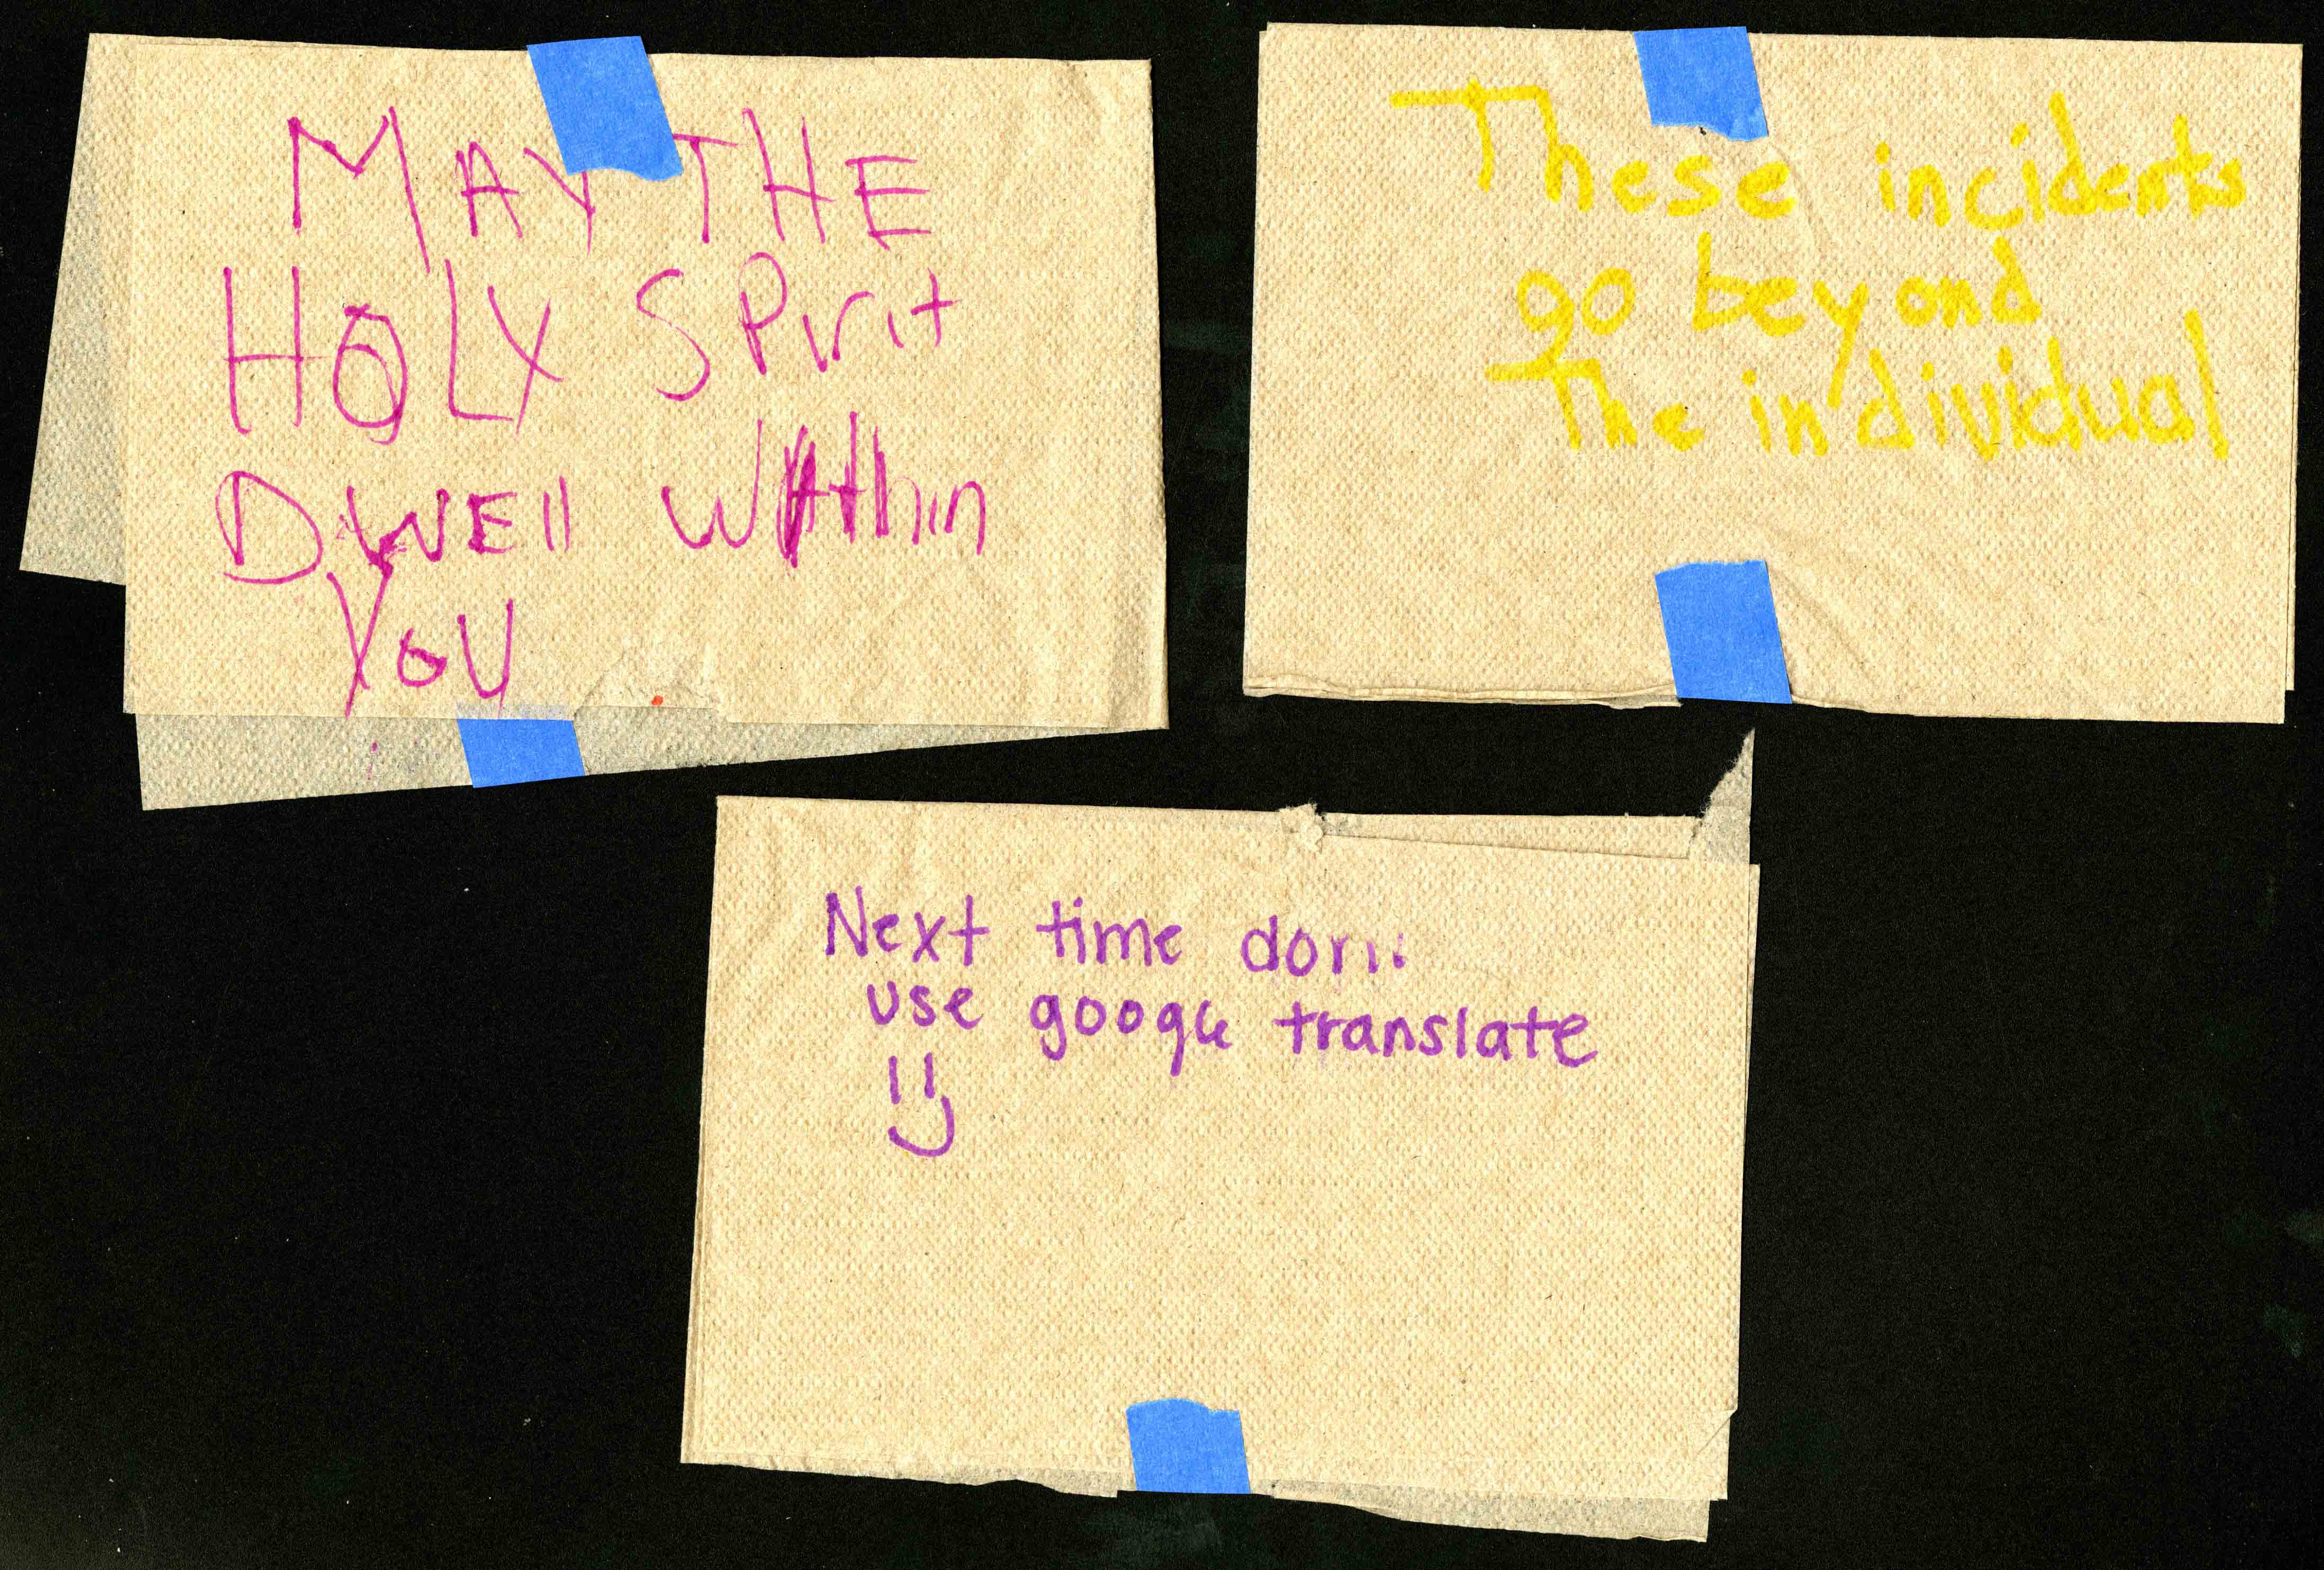 MAY THE
HOLY SPirit
DWEll Within
You
These incidents
go beyond
The individual
Next time don't
use google translate